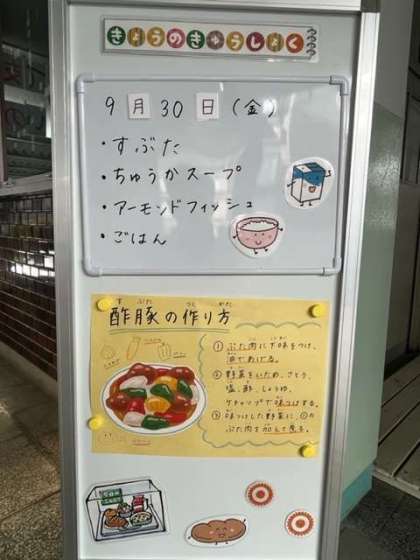 きょうのきゅうしょく
9月30日(金)
・すぶた
・ちゅうかスープ
・アーモンドフィッシュ
・ごはん
酢豚の作り方
① ぶた肉に下味をつけ、
油であげる。
② 野菜をいため、さとう、
塩、酢、しょうゆ、
ケチャップで味つけする。
③ 味つけした野菜に、①の
ぶた肉を加えて煮る。